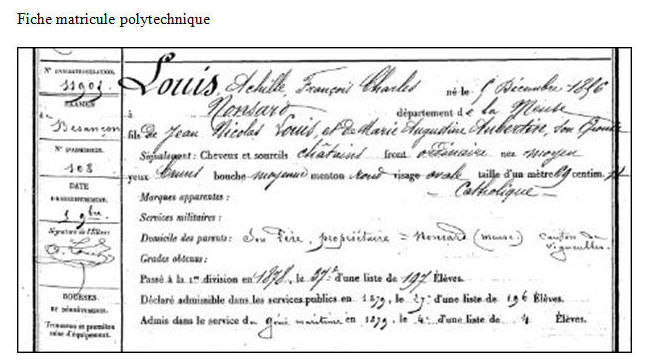 Fiche matricule polytechnique
N° D'IMMATRICULATION.
11907.
EXAMEN
de
Besançon
N° D'ADMISSION.
108
DATE
1 9bre
Signature de l'Élève:
BOURSES
ET DÉDOUBLEMENTS.
Trousseau et première
mise d'équipement.
Louis, Achille, François Charles né le 5 Décembre 1856
à Nonsard département de la Meuse
fils de Jean Nicolas Louis, et de Marie Augustine Aubertin, son Épouse
Signalement: Cheveux et sourcils châtains front ordinaire nez moyen
yeux bruns bouche moyenne menton rond visage ovale taille d'un mètre 69 centim.
Catholique
Marques apparentes:
Services militaires:
Domicile des parents: Son Père, propriétaire = Nonsard (Meuse) canton de Vigneulles.
Grades obtenus:
Passé à la 1re division en 1878, le 37e d'une liste de 197 Élèves.
Déclaré admissible dans les services publics en 1879, le d'une liste de 196 Élèves.
Admis dans le service du génie maritime en 1879, le 4e d'une liste de 4 Élèves.